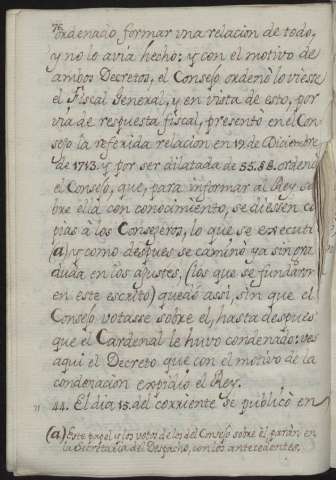 76
ordenado formar una relacion de todo,
y no lo avia hecho: y con el motivo de
ambos Decretos, el Consejo ordenò lo viesse
el Fiscal General, y en vista de esto, por
via de respuesta fiscal, presento en el Con
sejo la referida relacion en 19 de Diciembre
de 1713. y por ser dilatada de 55. §§. ordenò
el Consejo, que, para informar al Rey so
bre ella con conocimiento, se diessen co
pias à los Consejeros, lo que se executò
(a) y como despues se caminò ya sin gran
duda en los ajustes, (los que se fundaron
en este escrito) quedò assi, sin que el
Consejo votasse sobre el, hasta despues
que el Cardenal le huvo condenado: ves
aqui el Decreto que con el motivo de la
condenacion expidio el Rey.
44. El dia 15. del corriente se publicò en
(a) Este papel y los votos de los del Consejo sobre èl paran en
la Secretaria del Despacho, con los antecedentes.